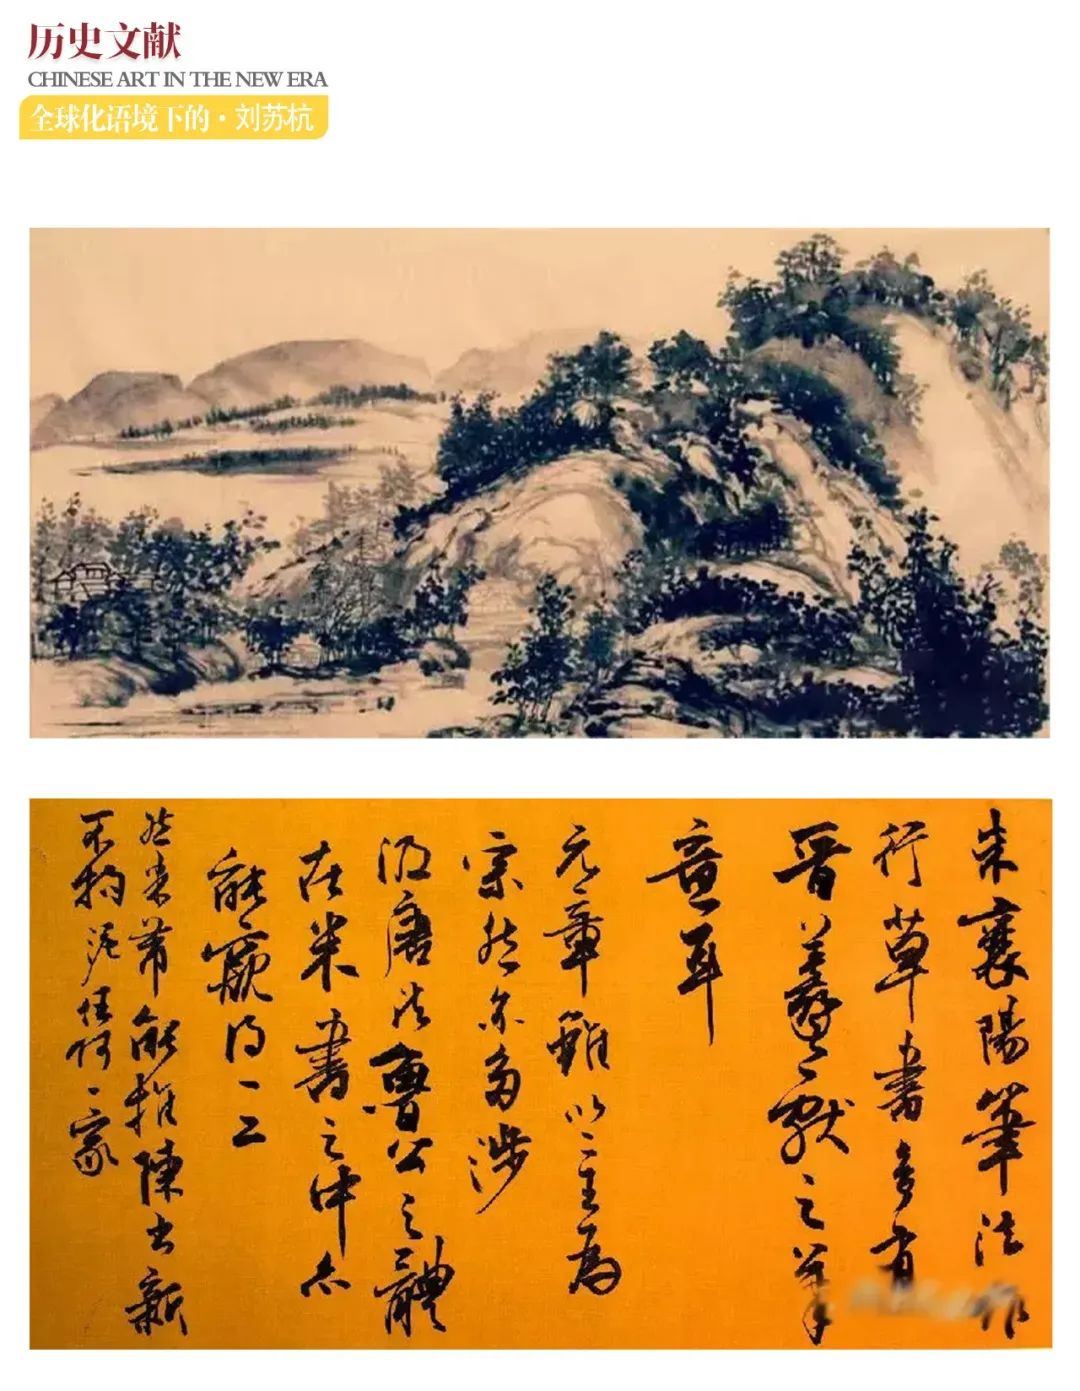 历史文献
CHINESE ART IN THE NEW ERA
全球化语境下的·刘苏杭
米襄陽筆法作
行草書多有
晋羲獻之筆
意耳
元章雖以二王為
宗然亦多涉
唐法魯公之體
在米書之中亦
能窺得一二
然米芾能推陳出新
不拘泥任何一家